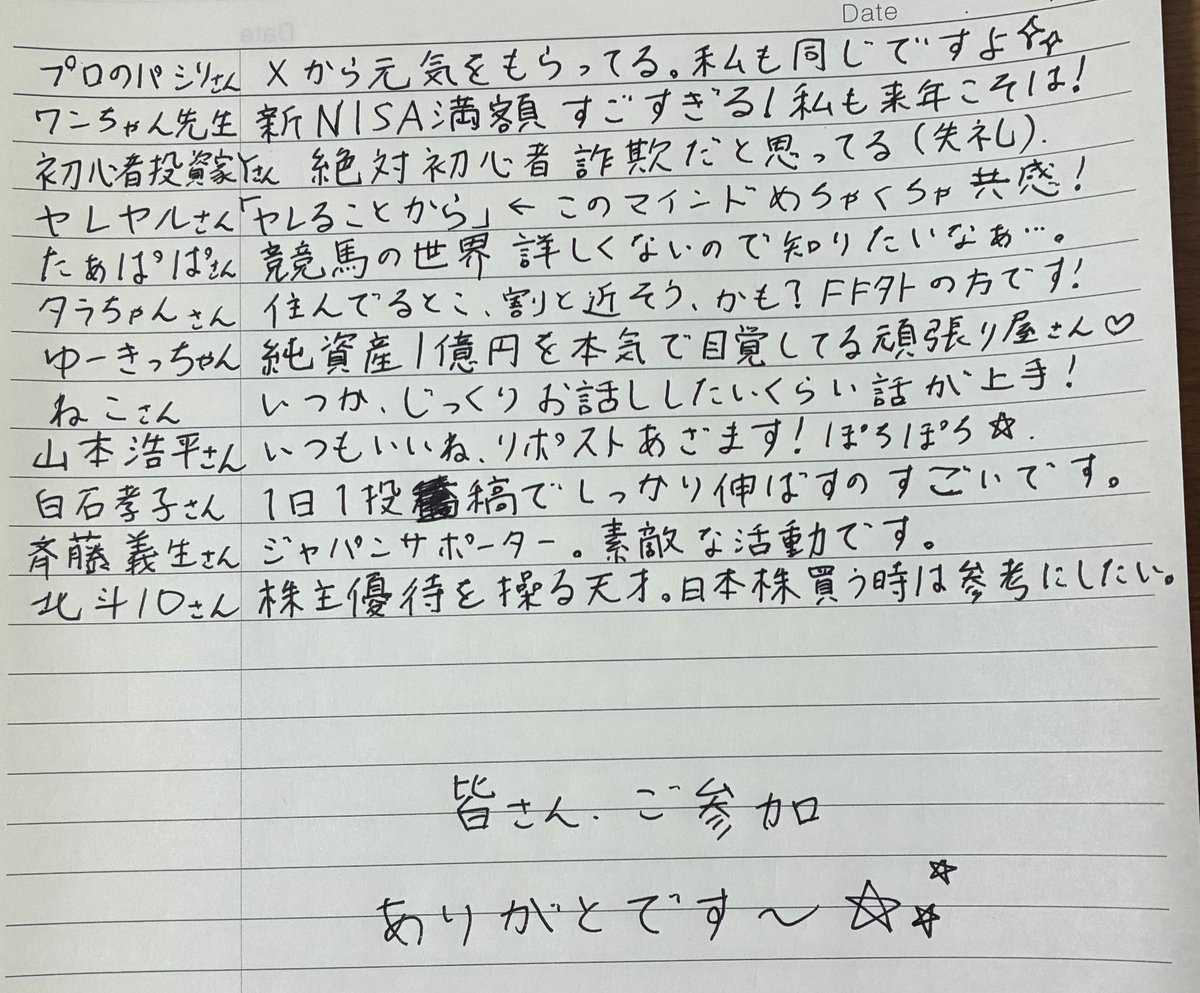 Date
プロのパシリさん Xから元気をもらってる。私も同じですよ☆☆
ワンちゃん先生 新NISA満額 すごすぎる!私も来年こそは!
初心者投資家Yさん 絶対初心者詐欺だと思ってる(失礼).
ヤレヤルさん「ヤレることから」←このマインドめちゃくちゃ共感!
たぁぱぱさん 競馬の世界 詳しくないので知りたいなぁ…。
タラちゃんさん 住んでるとこ、割と近そう、かも?FF外の方です!
ゆーきっちゃん 純資産1億円を本気で目覚してる頑張り屋さん♡
ねこさん いつか、じっくりお話ししたいくらい話が上手!
山本浩平さん いつもいいね、リポストあざます!ぽちぽち☆.
白石孝子さん 1日1投稿でしっかり伸ばすのすごいです。
斉藤義生さん ジャパンサポーター。素敵な活動です。
北斗10さん 株主優待を操る天才。日本株買う時は参考にしたい。
皆さん、ご参加
ありがとです〜☆☆☆